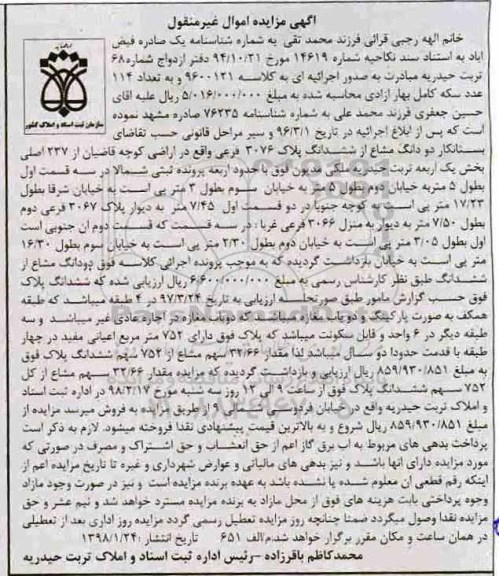 آگهی مزایده اموال غیرمنقول
خانم الهه رجبی قرائی فرزند محمد تقی به شماره شناسنامه یک صادره فیض
اباد به استناد سند نکاحیه شماره ۱۴۶۱۹ مورخ ۹۴/۱۰/۲۱ دفتر ازدواج شماره ۶۸
تربت حیدریه مبادرت به صدور اجرائیه ای به کلاسه ۹۶۰۰۱۲۱ و به تعداد ۱۱۴
عدد سکه کامل بهار ازادی محاسبه شده به مبلغ ۵/۰۱۶/۰۰۰/۰۰۰ ریال علیه اقای
حسین جعفری فرزند محمد علی به شماره شناسنامه ۷۶۲۳۵ صادره مشهد نموده
است که پس از ابلاغ اجرائیه در تاریخ ۹۶/۳/۱ و سیر مراحل قانونی حسب تقاضای
بستانکار دو دانگ مشاع از ششدانگ پلاک ۳۰۷۶ فرعی واقع در اراضی کوچه قاضیان از ۲۳۷ اصلی
بخش یک اربعه تربت حیدریه ملکی مدیون فوق با حدود اربعه پرونده ثبتی شمالا در سه قسمت اول
بطول ۵ متر به خیابان دوم بطول ۵ متر به خیابان سوم بطول ۳ متر پی است به خیابان شرقا بطول
۱۷/۲۳ متر پی است به کوچه جنوبا در دو قسمت اول ۷/۴۵ متر به دیوار پلاک ۳۰۶۷ فرعی دوم
بطول ۷/۵۰ متر به دیوار به منزل ۳۰۶۶ فرعی غربا : در سه قسمت که قسمت دوم ان جنوبی است
اول بطول ۳/۰۵ متر پی است به خیابان دوم بطول ۲/۳۰ متر پی است به خیابان سوم بطول ۱۶/۳۰
متر پی است به خیابان بازداشت گردیده که به موجب پرونده اجرائی کلاسه فوق دودانگ مشاع از
ششدانگ طبق نظر کارشناس رسمی به مبلغ ۶/۶۰۰/۰۰۰/۰۰۰ ریال ارزیابی شده که ششدانگ پلاک
فوق حسب گزارش مامور طبق صورتجلسه ارزیابی به تاریخ ۹۷/۳/۲۴ در ۴ طبقه میباشد که طبقه
همکف به صورت پارکینگ و دوباب مغازه میباشد که دوباب مغازه در اجاره عادی غیر میباشد و سه
طبقه دیگر در ۶ واحد و قابل سکونت میباشد که پلاک فوق دارای ۷۵۲ متر مربع اعیانی مفید در چهار
طبقه با قدمت حدودا دو سال میباشد لذا مقدار ۳۲/۶۶ سهم مشاع از ۷۵۲ سهم ششدانگ پلاک فوق
به مبلغ ۸۵۹/۹۳۰/۸۵۱ ریال ارزیابی و بازداشت گردیده که مزایده مقدار ۳۲/۶۶ سهم مشاع از کل
۷۵۲ سهم ششدانگ پلاک فوق از ساعت ۹ الی ۱۲ روز سه شنبه مورخ ۹۸/۲/۱۷ در اداره ثبت اسناد
و املاک تربت حیدریه واقع در خیابان فردوسی شمالی از طریق مزایده به فروش میرسد مزایده از
مبلغ ۸۵۹/۹۳۰/۸۵۱ ریال شروع و به بالاترین قیمت پیشنهادی نقدا فروخته میشود. لازم به ذکر است
پرداخت بدهی های مربوط به اب برق گاز اعم از حق انشعاب و حق اشتراک و مصرف در صورتی که
مورد مزایده دارای انها باشد و نیز بدهی های مالیاتی و عوارض شهرداری و غیره تا تاریخ مزایده اعم از
اینکه رقم قطعی ان معلوم شده یا نشده باشد به عهده برنده مزایده است و نیز در صورت وجود مازاد
وجوه پرداختی بابت هزینه های فوق از محل مازاد به برنده مزایده مسترد خواهد شد و نیم عشر و حق
مزایده نقدا وصول میگردد ضمنا چنانچه روز مزایده تعطیل رسمی گردد مزایده روز اداری بعد از تعطیلی
در همان ساعت و مکان مقرر برگزار خواهد شد.م/الف ۶۵۱ تاریخ انتشار :۱۳۹۸/۱/۲۴
محمدکاظم باقرزاده –رئیس اداره ثبت اسناد و املاک تربت حیدریه
سازمان ثبت اسناد و املاک کشور